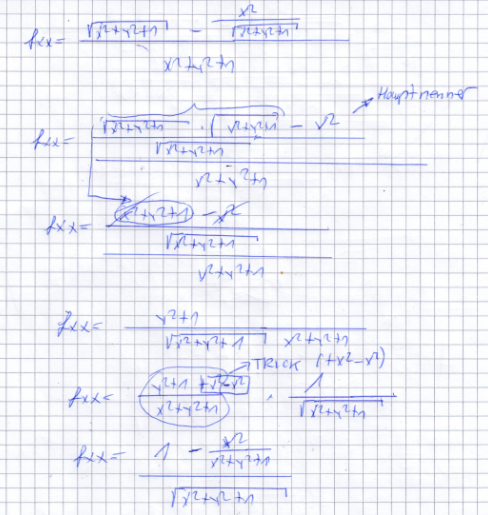 fxx = (√(x²+y²+1) − x²/√(x²+y²+1)) / (x²+y²+1)
Hauptnenner
fxx = ((√(x²+y²+1) · √(x²+y²+1) − x²) / √(x²+y²+1)) / (x²+y²+1)
fxx = ((x²+y²+1 − x²) / √(x²+y²+1)) / (x²+y²+1)
fxx = (y²+1) / (√(x²+y²+1) x²+y²+1)
TRICK (+x²−x²)
fxx = (y²+1 +x²−x²) / (x²+y²+1) · 1 / √(x²+y²+1)
fxx = (1 − x²/(x²+y²+1)) / √(x²+y²+1)